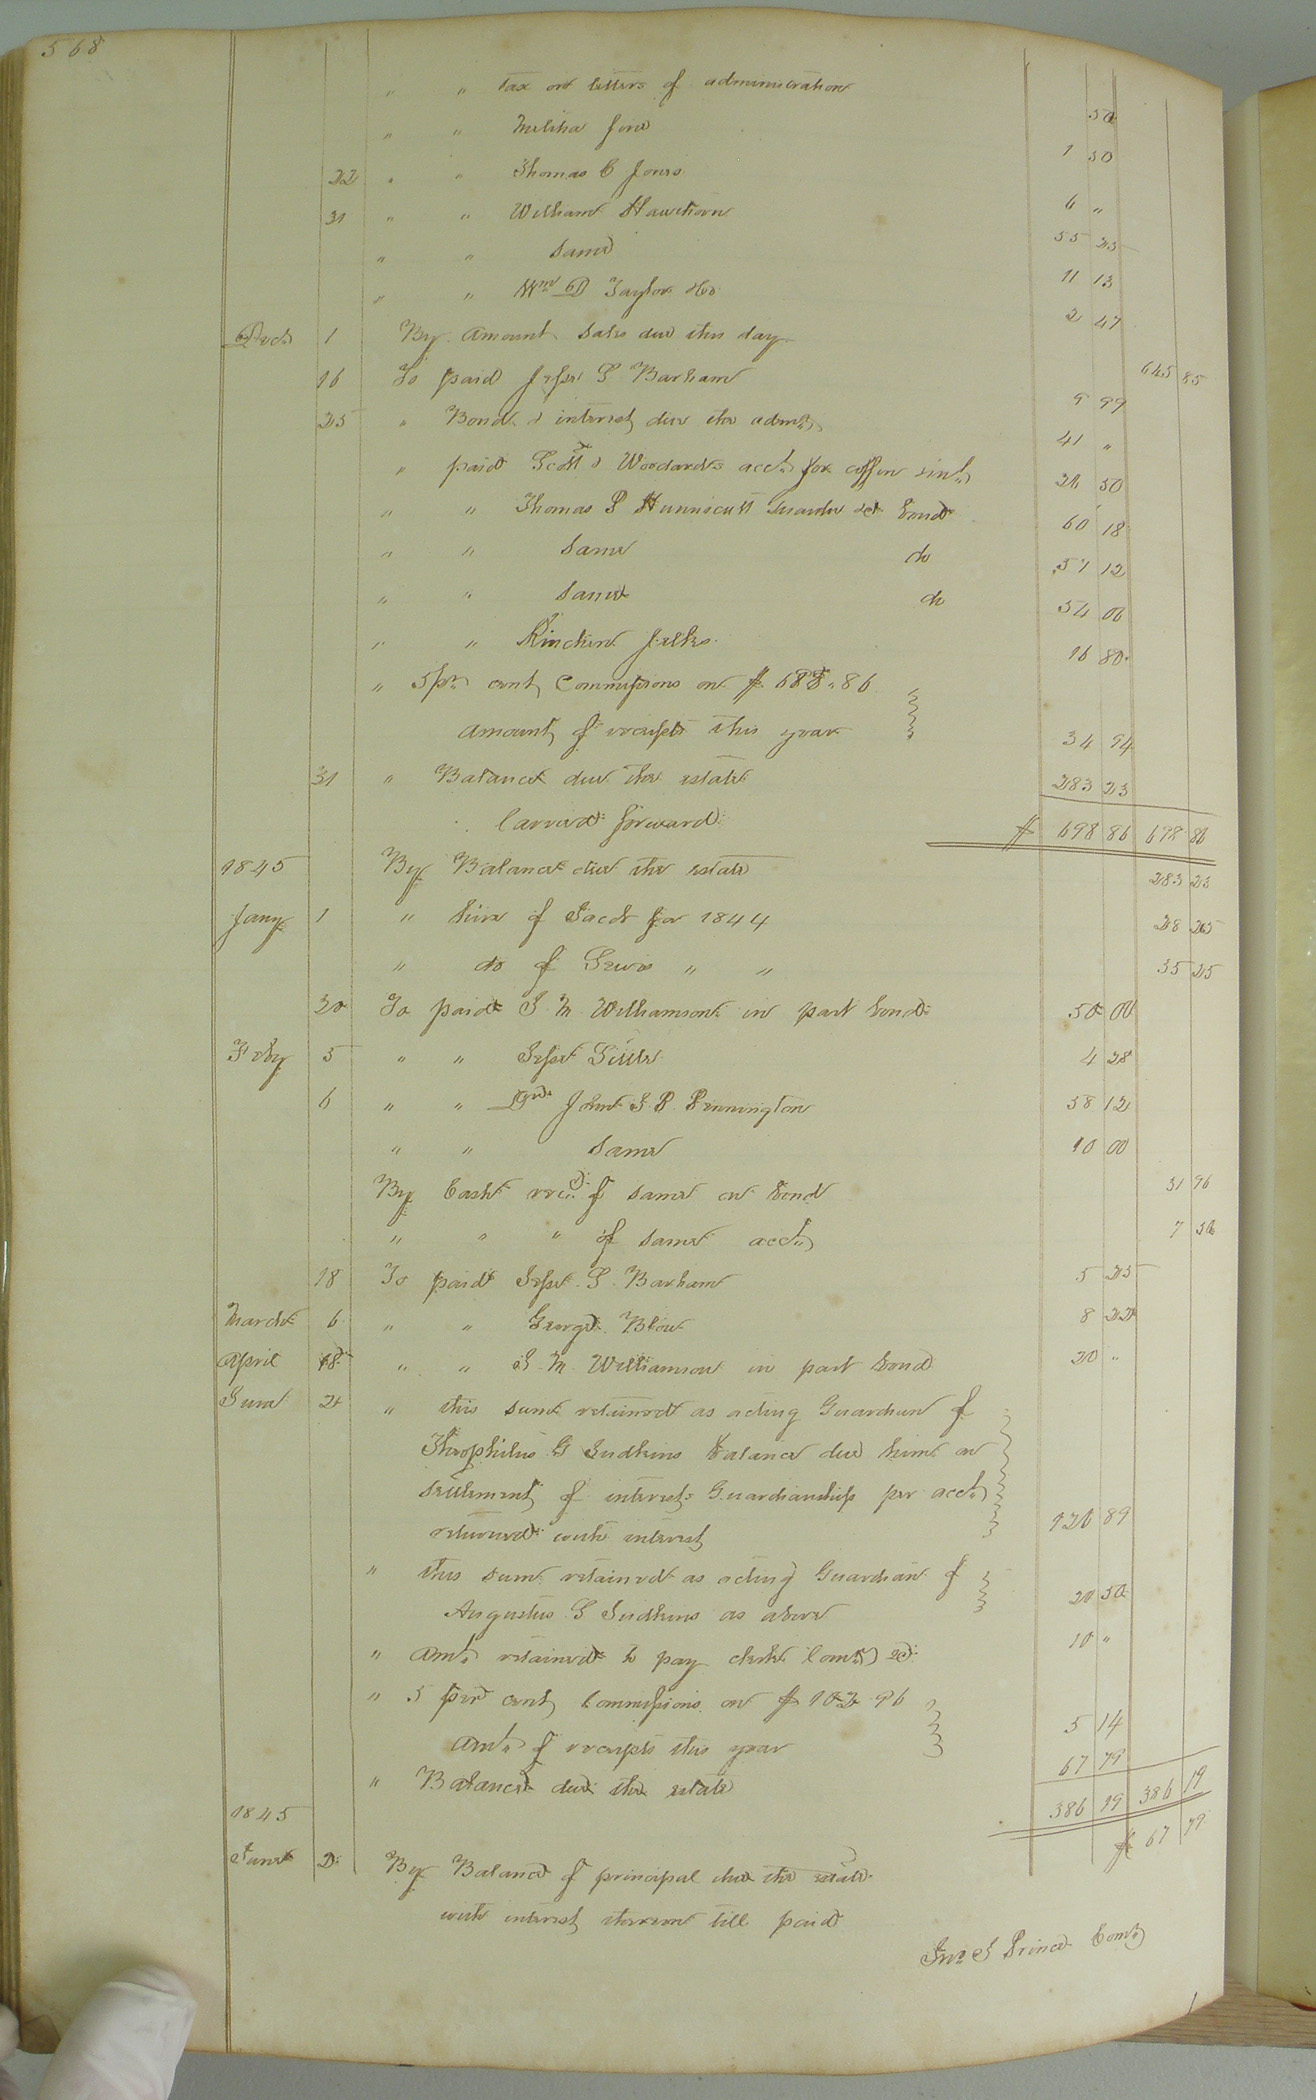 568
" " Tax on letters of administration 50
" " Militia fine 1 50
22 " " Thomas C Jones 6 "
31 " " William Hawthorn 55 25
" " Same 11 13
" " Wm D Taylor &Co 2 47
Decr 1 By amount Sales due this day 645 85
16 To paid Jesse L Barham 9 99
25 " Bond & interest due the admr 41 "
" paid Scott & Woodards acct for coffin &inst 20 50
" " Thomas P Hunnicutt Guardn &c bond 60 18
" " Same do 57 12
" " Same do 54 06
" " Kinchen Jelks 16 80
" 5 pr cent Commissions on $ 698.86
amount of receipts this year 34 94
31 " Balance due the estate 283 23
Carried forward $ 698 86 698 86
1845 By Balance due the estate 283 23
Jany 1 " hire of Jacob for 1844 28 25
" do of Lewis " " 35 25
20 To paid J. N. Williamson in part bond 50 00
Feby 5 " " Jesse Little 4 28
6 " " Dr John S. P. Pennington 58 12
" " Same 10 00
By Cash recd of same on bond 31 96
" " " of same acct 7 50
18 To paid Jesse L. Barham 5 25
March 6 " " George Blow 8 22
April 18 " " J. N. Williamson in part bond 20 "
June 2 " this sum retained as acting Guardian of
Theophilus G Judkins balance due him on
settlement of interest Guardianship per acct
returned with interest 126 89
" this sum retained as acting Guardian of
Augustus L Judkins as above 20 50
" Amt retained to pay clerk Comr &c 10 "
" 5 per cent Commissions on $ 102.96
Amt of receipts this year 5 14
" Balance due the estate 67 79
386 19 386 19
1845
June 2 By Balance of principal due the estate $ 67 79
with interest thereon till paid
Jno J Prince Comr